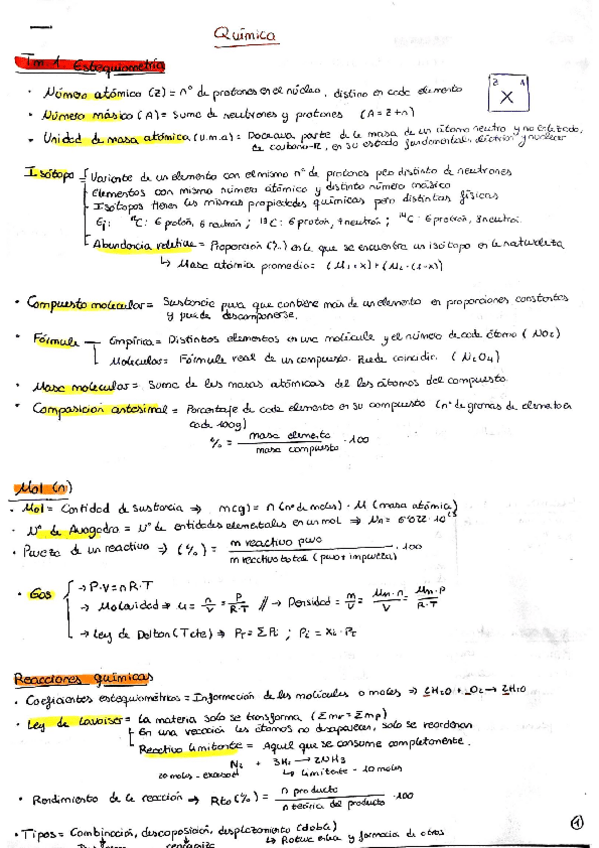 Química
Tm. 1 Estequiometría
· Número atómico (Z) = nº de protones en el núcleo, distino en cada elemento
Z A
X
· Número másico (A) = Suma de neutrones y protones (A = Z + n)
· Unidad de masa atómica (u.m.a) = Doceava parte de la masa de un átomo neutro y no enlazado,
de carbono-12, en su estado fundamental eléctrico y nuclear
Isótopo = Variante de un elemento con el mismo nº de protones pero distinto de neutrones
Elementos con mismo número atómico y distinto número másico
Isótopos tienen las mismas propiedades químicas pero distintas físicas
Ej: ¹²C: 6 protón, 6 neutrón ; ¹³C: 6 protón, 7 neutrón ; ¹⁴C: 6 protrón, 8 neutrón.
Abundancia relativa = Proporción (%) en la que se encuentra un isótopo en la naturaleza
↳ Masa atómia promedio = (M₁ · x) + (M₂ · (1-x))
· Compuesto molecular = Sustancia pura que contiene más de un elemento en proporciones constantes
y puede descomponerse.
· Fórmula — Empírica = Distintos elementos en una molécula y el número de cada átomo (NO₂)
Molecular = Fórmula real de un compuesto. Puede coincidir. (N₂O₄)
· Masa molecular = Suma de las masas atómicas del los átomos del compuesto.
· Composición centesimal = Porcentaje de cada elemento en su compuesto (nº de gramos de elemento en
cada 100g)
% = masa elemento / masa compuesto · 100
Mol (n)
· Mol = Cantidad de sustancia ⇒ m(g) = n (nº de moles) · M (masa atómica)
· Nº de Avogadro = Nº de entidades elementales en un mol ⇒ Na = 6'022 · 10
· Pureza de un reactivo ⇒ (%) = m reactivo puro / m reactivo total (puro + impureza) · 100
· Gas → P·V = n R·T
→ Molaridad ⇒ M = n/V = P/R·T // → Densidad = m/V = Mm·n/V = Mm·P/R·T
→ Ley de Dalton (T cte) ⇒ PT = Σ Pi ; Pi = Xi · PT
Reacciones químicas
· Coeficientes estequiométricos = Información de las moléculas o moles ⇒ 2H₂O + O₂ → 2H₂O
· Ley de Lavoiser = La materia solo se transforma (Σmr = Σmp)
En una reacción los átomos no desaparecen, solo se reordenan
Reactivo limitante = Aquel que se consume completamente.
N₂ + 3H₂ → 2NH₃
20 moles - exceso ↳ limitante - 10 moles
· Rendimiento de la reacción ⇒ Rto (%) = n producto / n teórica del producto · 100
· Tipos = Combinación, descoposición, desplazamiento (doble)
↳ Rotura enlace y formacia de otros
1